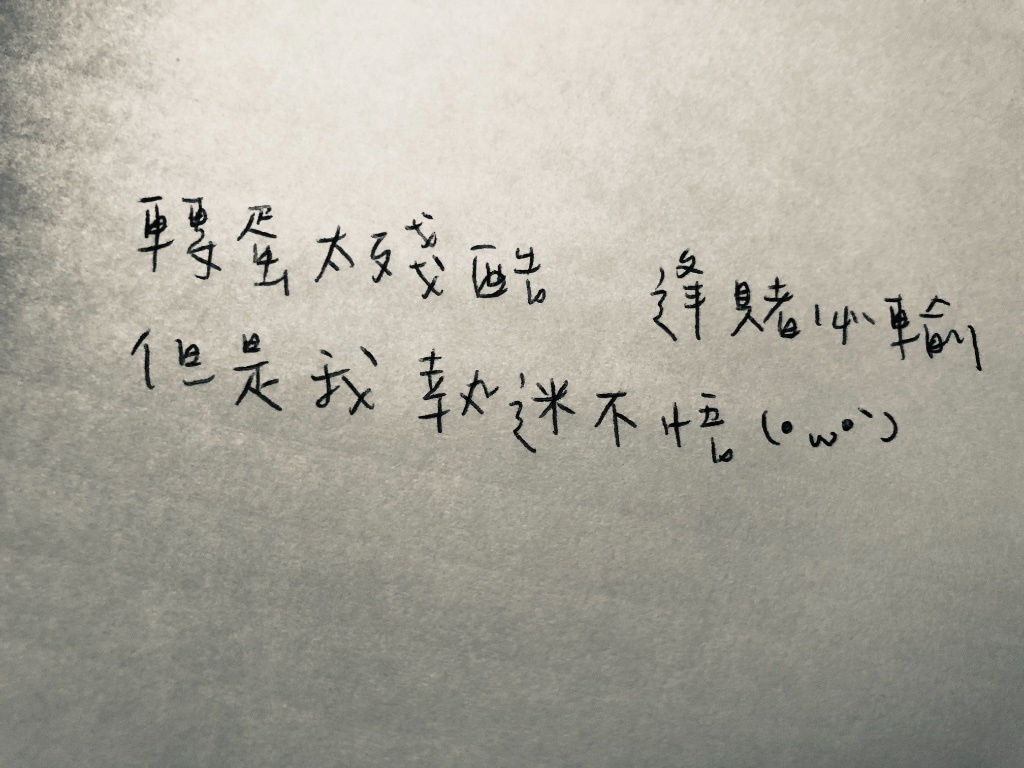 轉蛋太殘酷 逢賭必輸
但是我執迷不悟(•ω•`)